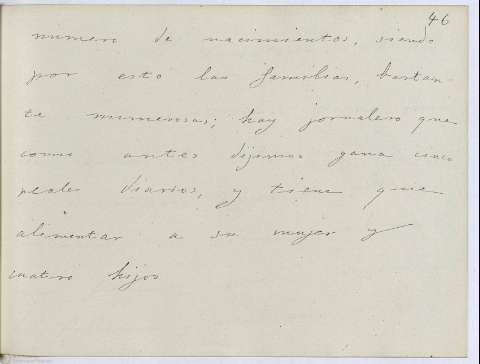 46
numero de nacimientos, siendo
por esto las familias, bastan-
te numerosas; hay jornalero que
como antes dijimos gana cinco
reales diarios, y tiene que
alimentar a su mujer y
cuatro hijos